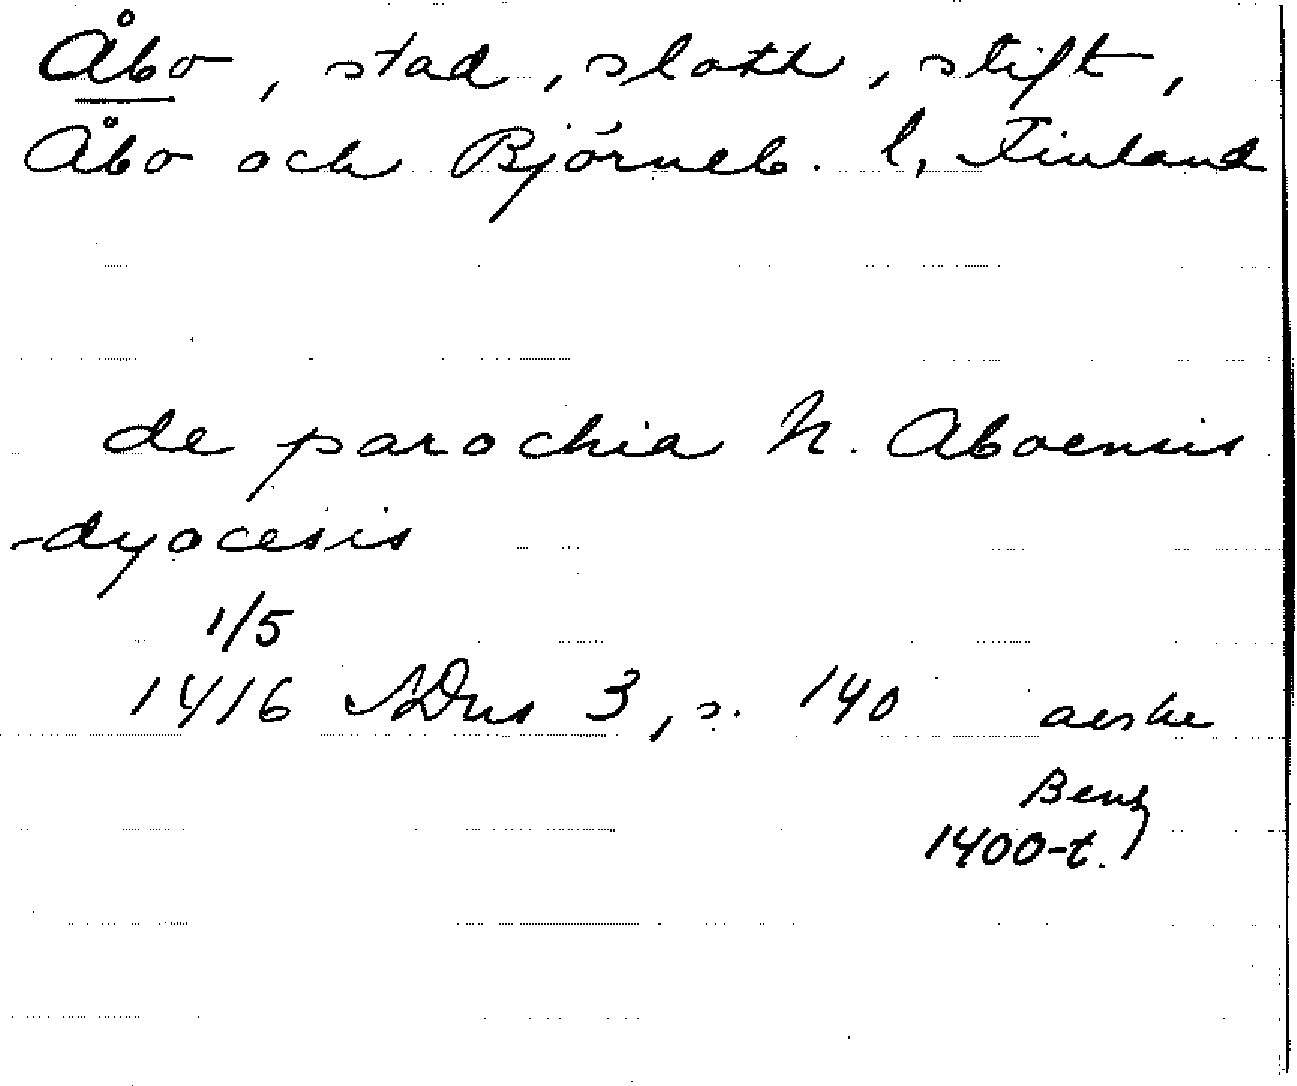 Åbo, stad, slott, stift,
Åbo och Björneb. l, Finland
de parochia N. Aboensis
dyocesis
1/5
1416 SDns 3, s. 140 avskr
1400-t.)